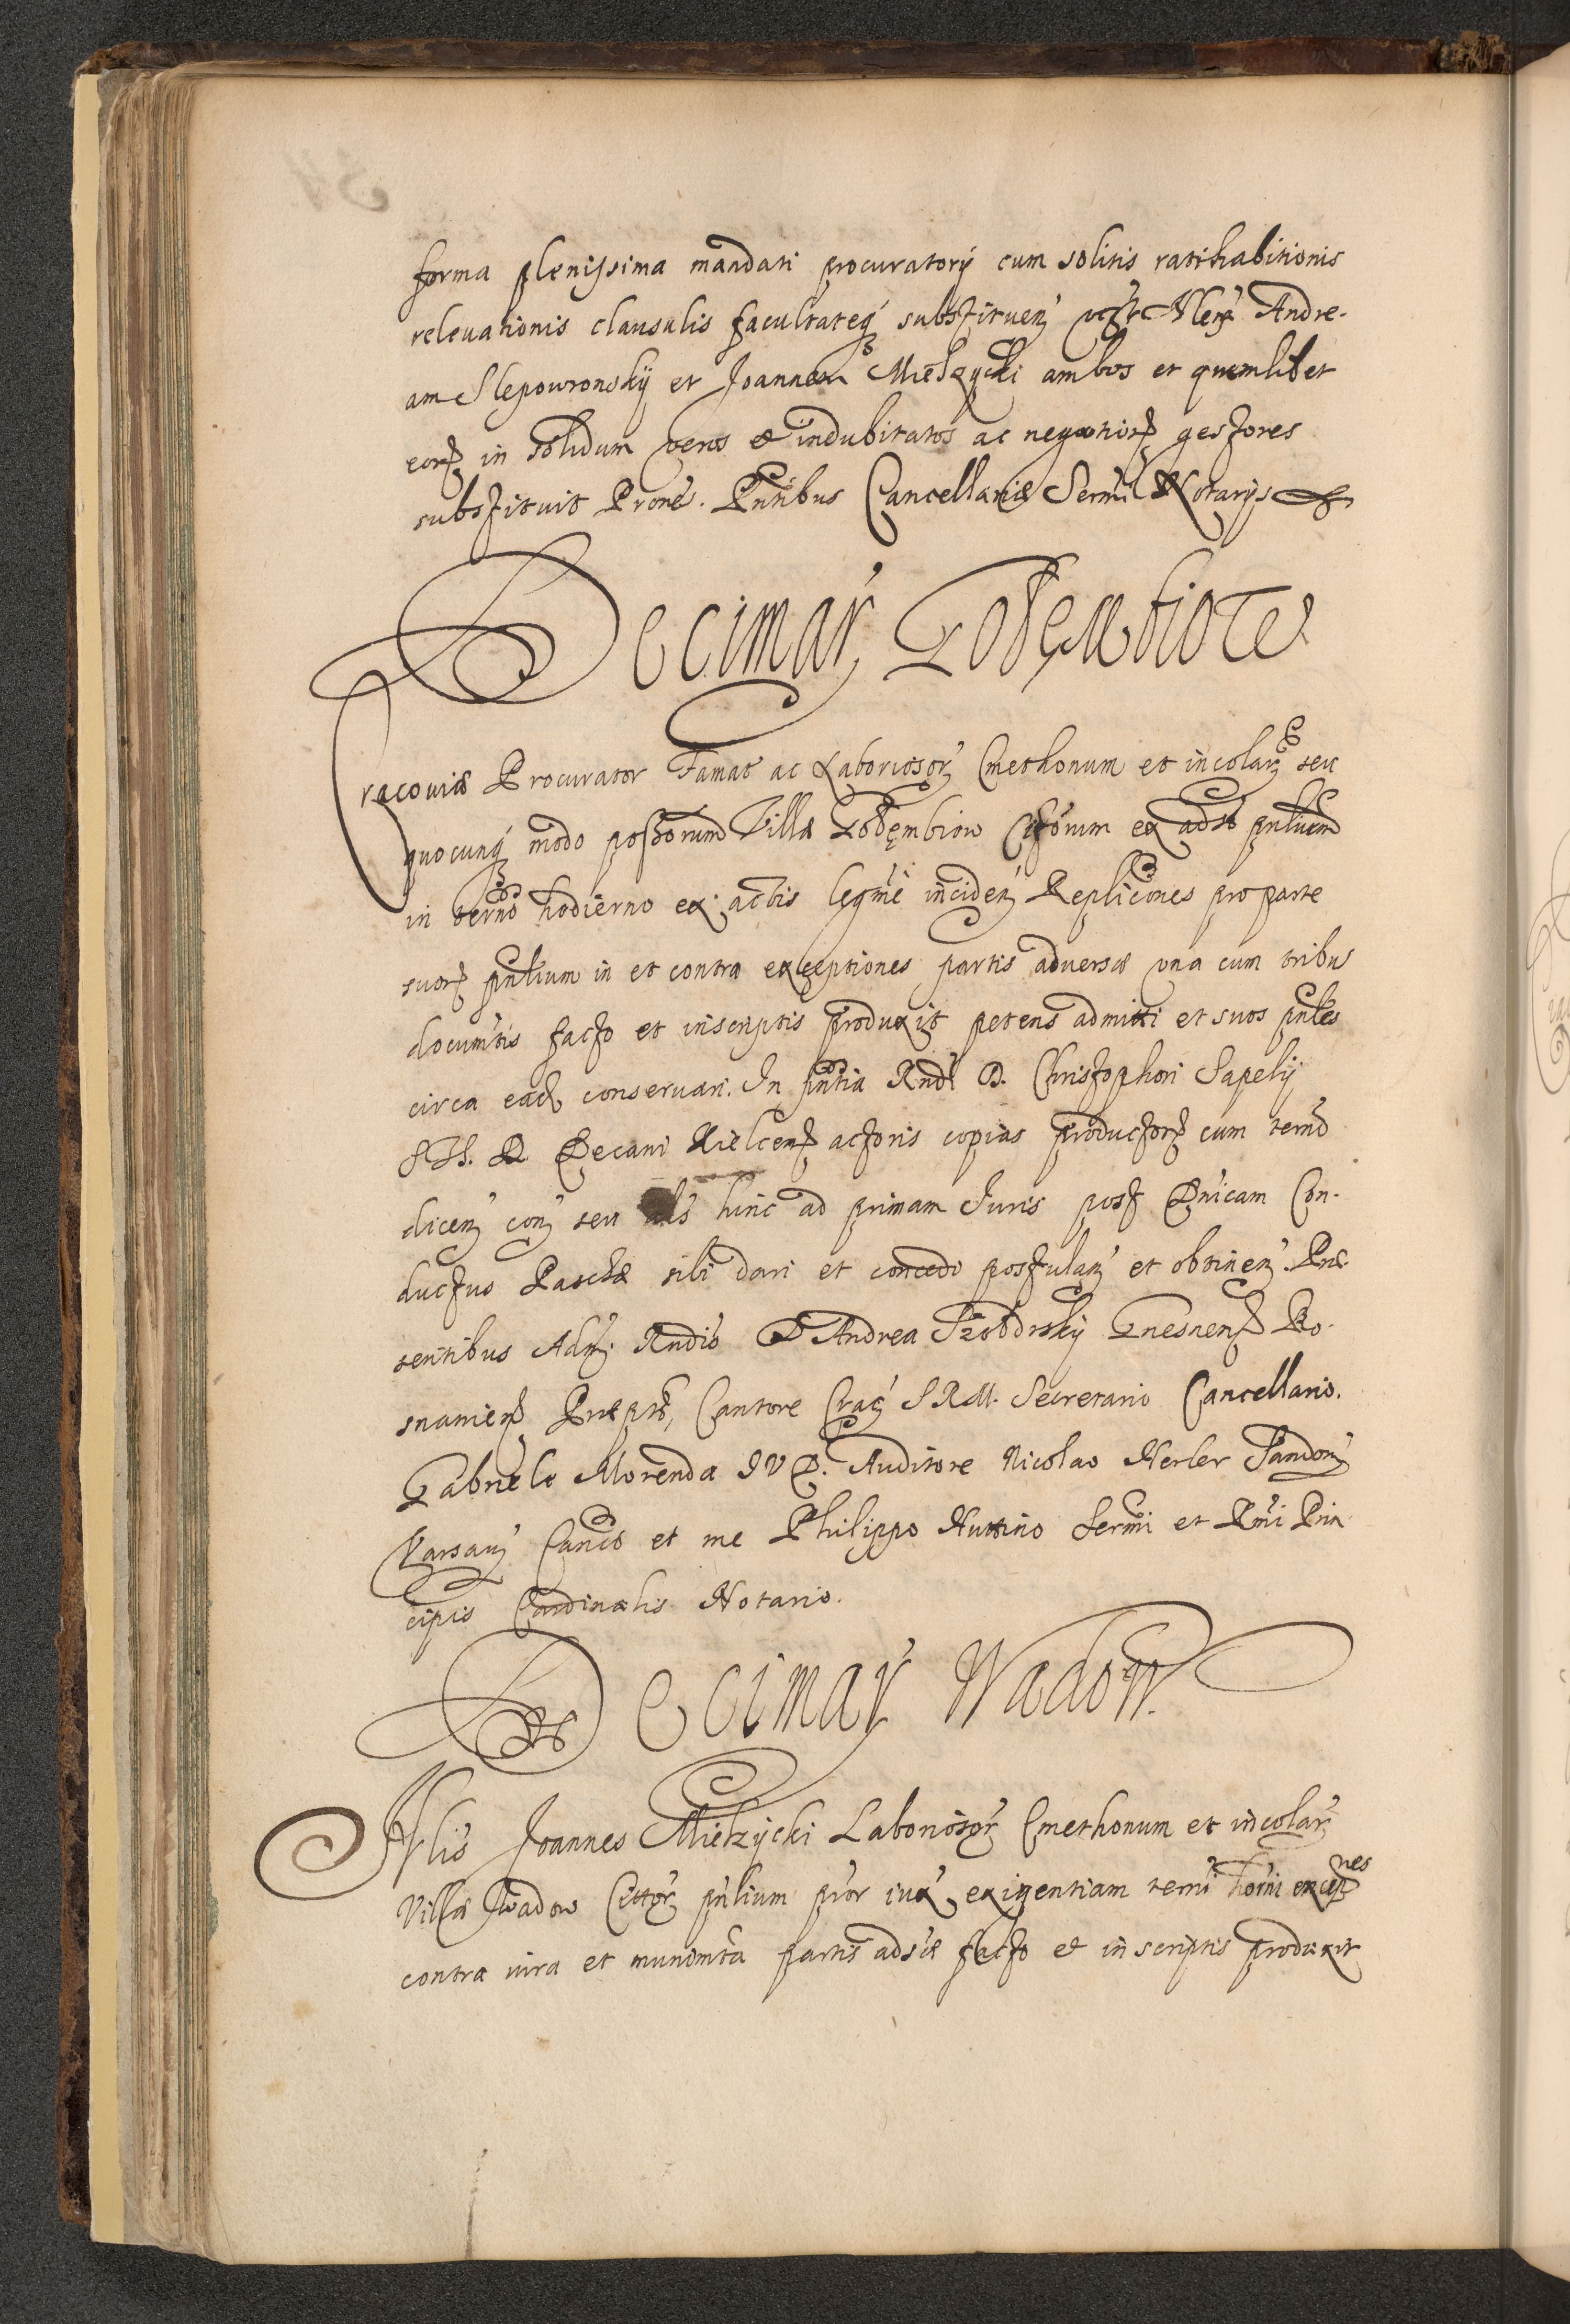 forma plenissima mandati procuratorij cum solitis ratihabitionis
relevationis clausulis facultateq substituen Andre-
am Slepowronskij et Joannem Mielzycki ambos et quemlibet
eorz in solidum veros et indubitatos ac negotiorz gestores
substituit Prone. Pntibus Cancellariæ Sermi Notarijs
Decimar Gołembiow
Cracoviæ Procurator Famat ac Laboriosor Cmethonum et incolarz seu
quocunq modo possorum Villæ Gołembiow Citorum ex adso pnlium
in termo hodierno ex actis legme inciden Replicones pro parte
suorz pnlium in et contra exceptiones partis adversæ una cum tribus
documtis facto et inscriptis produxit petens admitti et suos pnles
circa ead conservari. In pntia Rndi D. Christophori Sapelij
D Decani Kielcens actoris copias productorz cum termo
dicen con seu als hinc ad primam Juris post Dnicam Con-
ductus Paschæ sibi dari et concedi postulan et obtinen. Præ-
sentibus Adm. Rndis D Andrea Szołdrskij Gnesnens Po-
snaniens Præpto, Cantore Crac S R M. Secretario Cancellario.
Gabriele Morenda I V D. Auditore Nicolao Herler Sandom
Varsav Canco et me Philippo Huttino Sermi et Rmi Prin-
cipis Cardinalis Notario.
Decimar Wadow.
Nlis Joannes Mielzycki Laboriosor Cmethonum et incolar
Villæ Wadow Cittor pnlium pror iux exigentiam termi horni excepnes
contra iura et munimta partis adsæ facto et in scriptis produxit